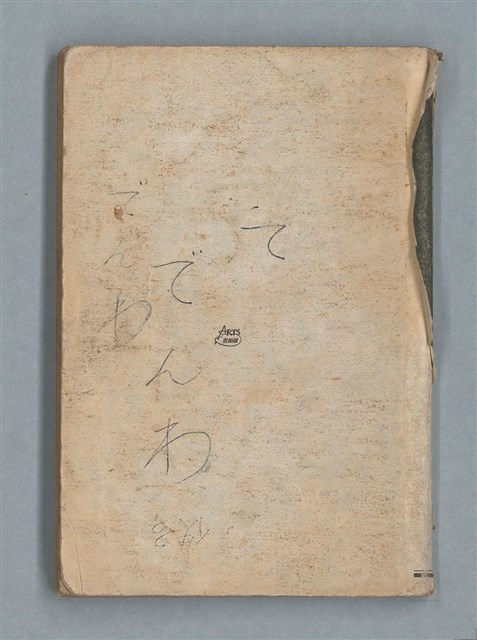 て
でんわ
でんわ
ARTS